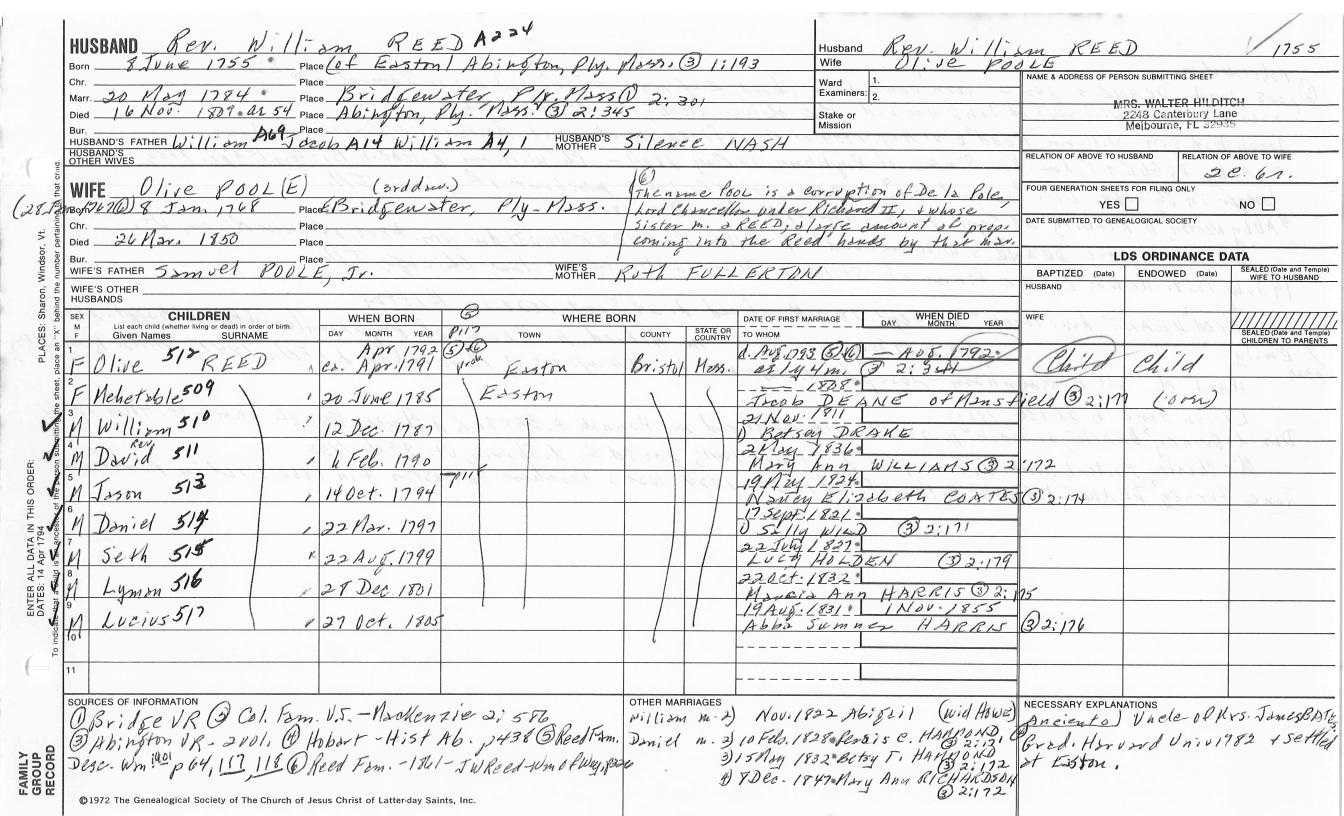 HUSBAND Rev. William REED A224
Born 8 June 1755 Place (of Easton) Abington, Ply. Mass. (3) 1:193
Chr. Place
Marr. 20 May 1784 Place Bridgewater, Ply. Mass (1) 2:301
Died 16 Nov. 1809 ae 54 Place Abington, Ply. Mass. (3) 2:345
Bur. Place
HUSBAND'S FATHER William A69 Jacob A14 William A4, 1 HUSBAND'S MOTHER Silence NASH
HUSBAND'S OTHER WIVES
Husband Rev. William REED 1755
Wife Olive POOLE
Ward Examiners: 1. 2.
Stake or Mission
NAME & ADDRESS OF PERSON SUBMITTING SHEET
MRS. WALTER HILDITCH
2248 Canterbury Lane
Melbourne, FL 32935
RELATION OF ABOVE TO HUSBAND RELATION OF ABOVE TO WIFE
2c. 6r.
FOUR GENERATION SHEETS FOR FILING ONLY
YES NO
DATE SUBMITTED TO GENEALOGICAL SOCIETY
WIFE Olive POOL(E) (3rd dau.)
(28 Jan 1767 (6)) Born 8 Jan. 1768 Place Bridgewater, Ply-Mass.
Chr. Place
Died 26 Mar. 1850 Place
Bur. Place
(6) The name POOL is a corruption of De la Pole,
Lord Chancellor under Richard II, & whose
sister m. a REED; a large amount of prop.
coming into the Reed hands by that mar.
WIFE'S FATHER Samuel POOLE, Jr. WIFE'S MOTHER Ruth FULLERTON
WIFE'S OTHER HUSBANDS
LDS ORDINANCE DATA
BAPTIZED (Date) ENDOWED (Date) SEALED (Date and Temple) WIFE TO HUSBAND
HUSBAND
WIFE
SEALED (Date and Temple) CHILDREN TO PARENTS
SEX M F CHILDREN List each child (whether living or dead) in order of birth. Given Names SURNAME
WHEN BORN DAY MONTH YEAR
WHERE BORN TOWN COUNTY STATE OR COUNTRY
DATE OF FIRST MARRIAGE TO WHOM
WHEN DIED DAY MONTH YEAR
1 F Olive 512 REED Apr. 1792 ca. Apr. 1791 p117 (5)+(6) Easton Bristol Mass. d. Aug. 1793 (5)(6) ae 1y 4m. — Aug. 1792 Child Child
2 F Mehetable 509 20 June 1785 Easton — 1808 Jacob DEANE of Mansfield (3) 2:177 (over)
3 M William 510 12 Dec 1787 21 Nov. 1811 1) Betsey DRAKE
4 M Rev. David 511 6 Feb. 1790 2 May 1836 Mary Ann WILLIAMS (3) 2:172
5 M Jason 513 14 Oct. 1794 19 May 1824 Nancy Elizabeth COATES (3) 2:174
6 M Daniel 514 22 Mar. 1797 17 Sept. 1821 1) Sally WILD (3) 2:171
7 M Seth 515 22 Aug. 1799 22 July 1827 Lucy HOLDEN (3) 2:179
8 M Lyman 516 28 Dec 1801 22 Oct. 1832 Marcia Ann HARRIS (3) 2:175
9 M Lucius 517 27 Oct. 1805 19 Aug. 1831 1 Nov. 1855 Abba Sumner HARRIS (3) 2:176
10
11
SOURCES OF INFORMATION
(1) Bridge VR (2) Col. Fam. U.S. - MacKenzie 2:586
(3) Abington VR - 2 vol. (4) Hobart - Hist Ab. p438 (5) Reed Fam.
Desc. Wm 1901 p64, 117, 118 (6) Reed Fam. - 1861 - JW Reed - Wm of Wey.
OTHER MARRIAGES
William m. 2) Nov. 1822 Abigail (wid HOWE)
Daniel m. 2) 10 Feb. 1828 Persis C. HAMMOND
3) 15 May 1832 Betsy T. HAMMOND (3) 2:172
4) 8 Dec. 1847 Mary Ann RICHARDSON (3) 2:172
NECESSARY EXPLANATIONS
Uncle of Mrs. James BATES
Grad. Harvard Univ 1782 & settled
at Easton.
©1972 The Genealogical Society of The Church of Jesus Christ of Latter-day Saints, Inc.
FAMILY GROUP RECORD
ENTER ALL DATA IN THIS ORDER:
DATES: 14 Apr 1794
PLACES: Sharon, Windsor, Vt.